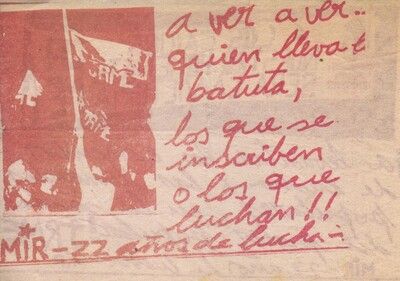 a ver a ver..
quien lleva l
batuta,
los que se
inscriben
o los que
luchan!!
MIR-22 años de lucha-